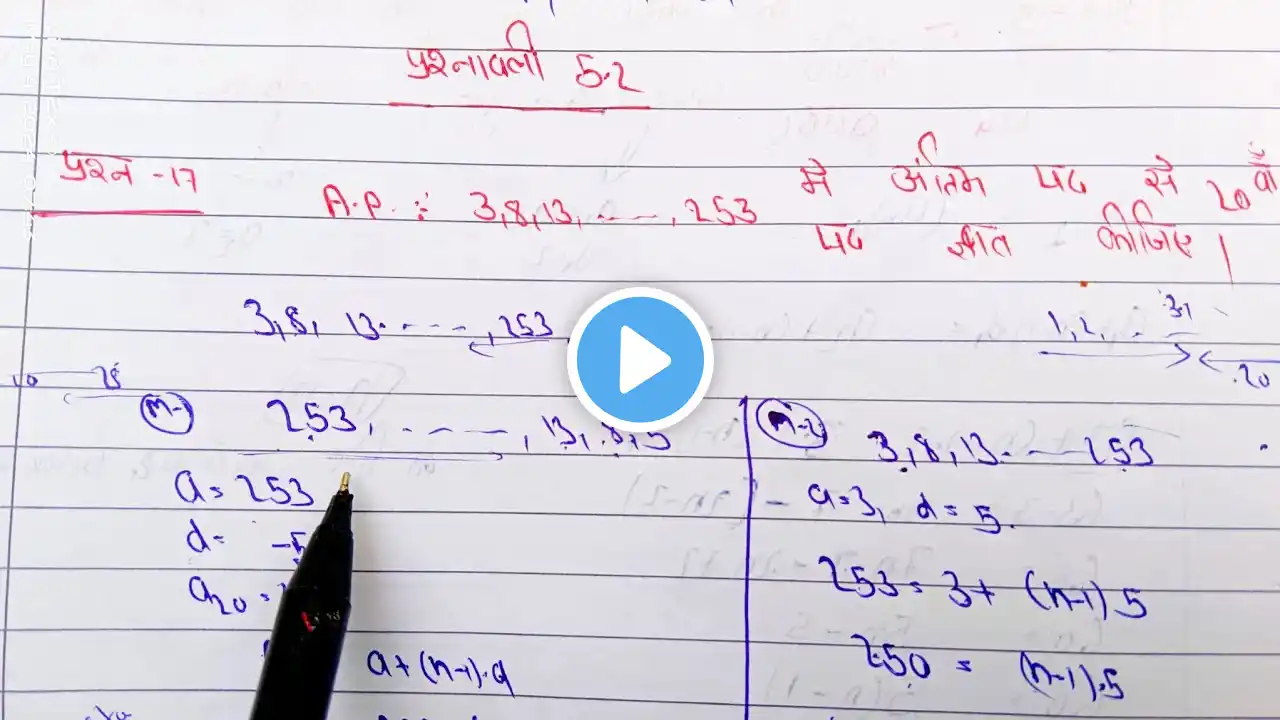 प्रश्नावली 5.2
प्रश्न -17
A.P. : 3,8,13, ----, 253 में अंतिम पद से 20 वाँ
पद ज्ञात कीजिए।
3,8, 13. - - - - , 253
1,2, ..
20
253, - - - - - , 13, 8, 3
a= 253
d=
a20 =
a+(n-1).d
3,8,13. - - - 253
a=3, d= 5.
253= 3+ (n-1) 5
250 = (n-1).5